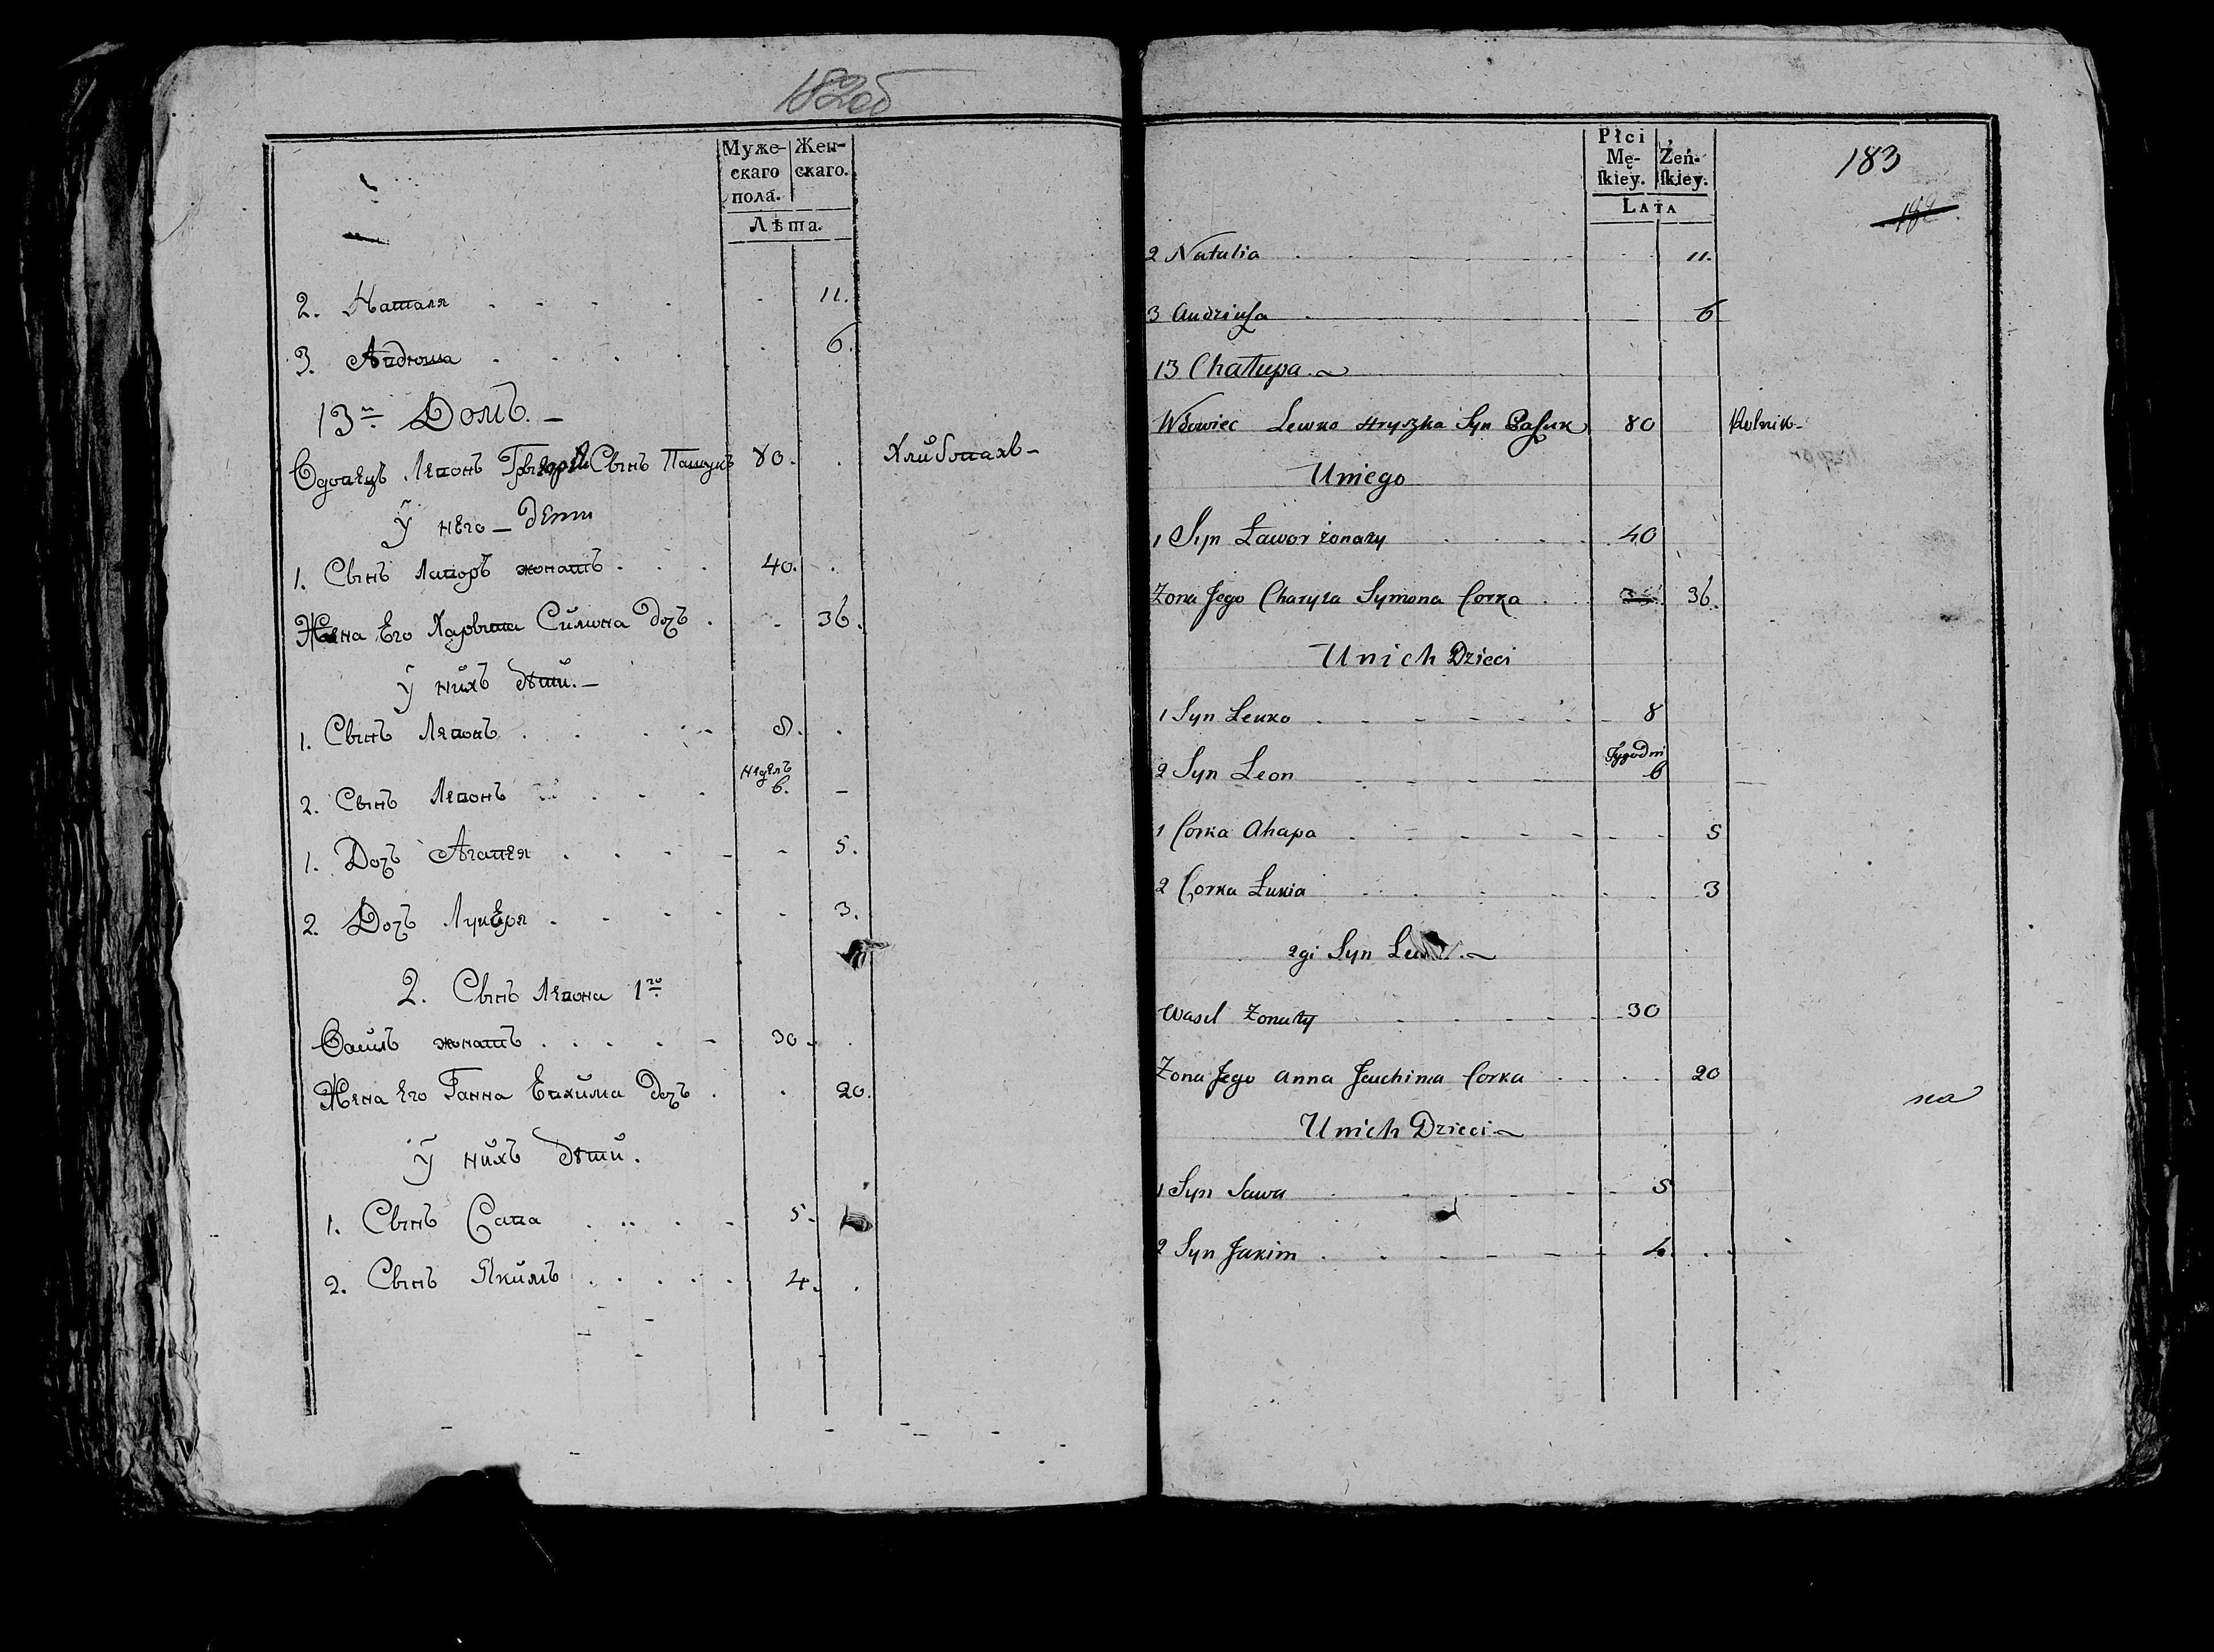 182об
Муже-
скаго
пола.
Жен-
скаго.
Лѣта.
2. Наталя 11.
3. Андюша 6.
13й Домъ. –
Вдовецъ Левонъ Григорей Сынъ Пашукъ 80. Хлибопахъ –
У него – дети
1. Сынъ Лаворъ жонатъ 40.
Жена Его Харытя Симона Дочъ 36.
У нихъ дѣти. –
1. Сынъ Левонъ 8.
2. Сынъ Левонъ недѣлъ 6. –
1. Дочъ Агапея 5.
2. Дочъ Лукеря 3.
2. Сынъ Левона 1го
Василъ жонатъ 30.
Жена Его Ганна Евхима Дочъ 20.
У нихъ дѣти.
1. Сынъ Сава 5.
2. Сынъ Якимъ 4.
Płci
Mę-
ſkiey.
Żeń-
ſkiey.
LATA
183
182
2 Natalia 11.
3 Andziuſa 6
13 Chałupa.
Wdowiec Lewko Hryszka Syn Paſuk 80 Rolnik –
Uniego
1 Syn Ławor żonaty 40
Zona Jego Charyta Symona Corka 36.
Unich Dzieci
1 Syn Lewko 8
2 Syn Leon Tygodni 6
1 Corka Ahapa 5
2 Corka Łukia 3
2gi Syn
Wasil Zonaty 30
Zona Jego Anna Jeuchima Corka 20
na
Unich Dzieci
1 Syn Sawa 5
2 Syn Jakim 4.